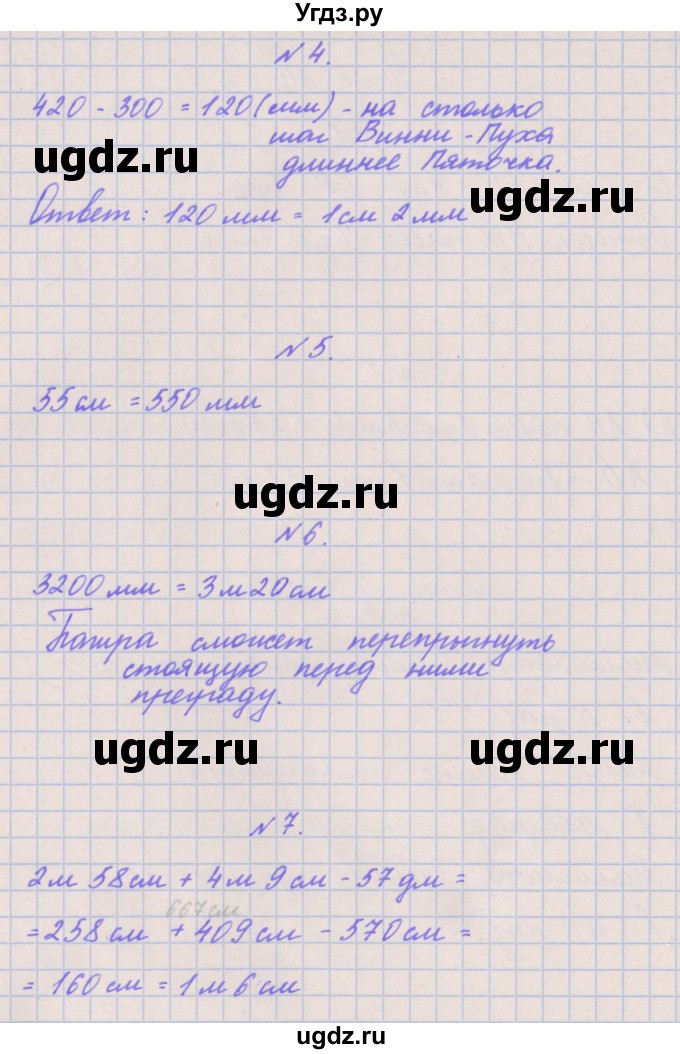 Угдз.ру
№ 4.
420 - 300 = 120 (мм) - на столько
шаг Винни - Пуха
длиннее Пяточка.
ugdz.ru
ugdz.ru
Ответ: 120 мм = 1 см 2 мм
№ 5.
55 см = 550 мм
ugdz.ru
№ 6.
3200 мм = 3 м 20 см
сможет перепрыгнуть
стоящую перед ними
преграду.
ugdz.ru
ugdz.ru
№ 7.
2 м 58 см + 4 м 9 см - 57 дм =
667 см
= 258 см + 409 см - 570 см =
= 160 см = 1 м 6 см
ugdz.ru